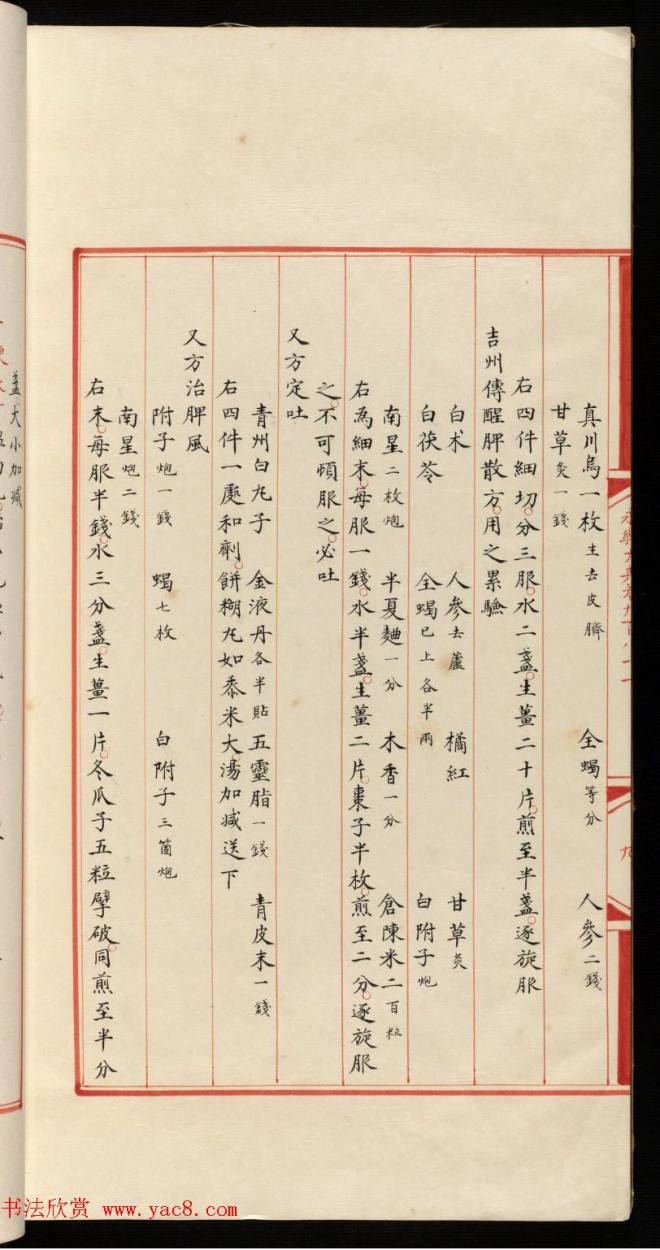 真川烏一枚生去皮臍　全蝎等分　人參二錢
甘草炙一錢
右四件細切。分三服。水二盞。生薑二十片。煎至半盞。逐旋服
吉州傳醒脾散方。用之累驗
白术　人參去蘆　橘紅　甘草炙
白茯苓　全蝎已上各半兩　白附子炮
南星二枚炮　半夏麯一分　木香一分　倉陳米二百粒
右為細末。每服一錢。水半盞。生薑二片。棗子半枚。煎至二分。逐旋服
之。不可頓服之。必吐
又方定吐
青州白丸子　金液丹各半貼　五靈脂一錢　青皮末一錢
右四件一處和劑。餅糊丸如黍米大。湯加減送下
又方治脾風
附子炮一錢　蝎七枚　白附子三箇炮
南星炮二錢
右末。每服半錢。水三分盞。生薑一片。冬瓜子五粒擘破。同煎至半分
盞大小加減
书法欣赏 www.yac8.com